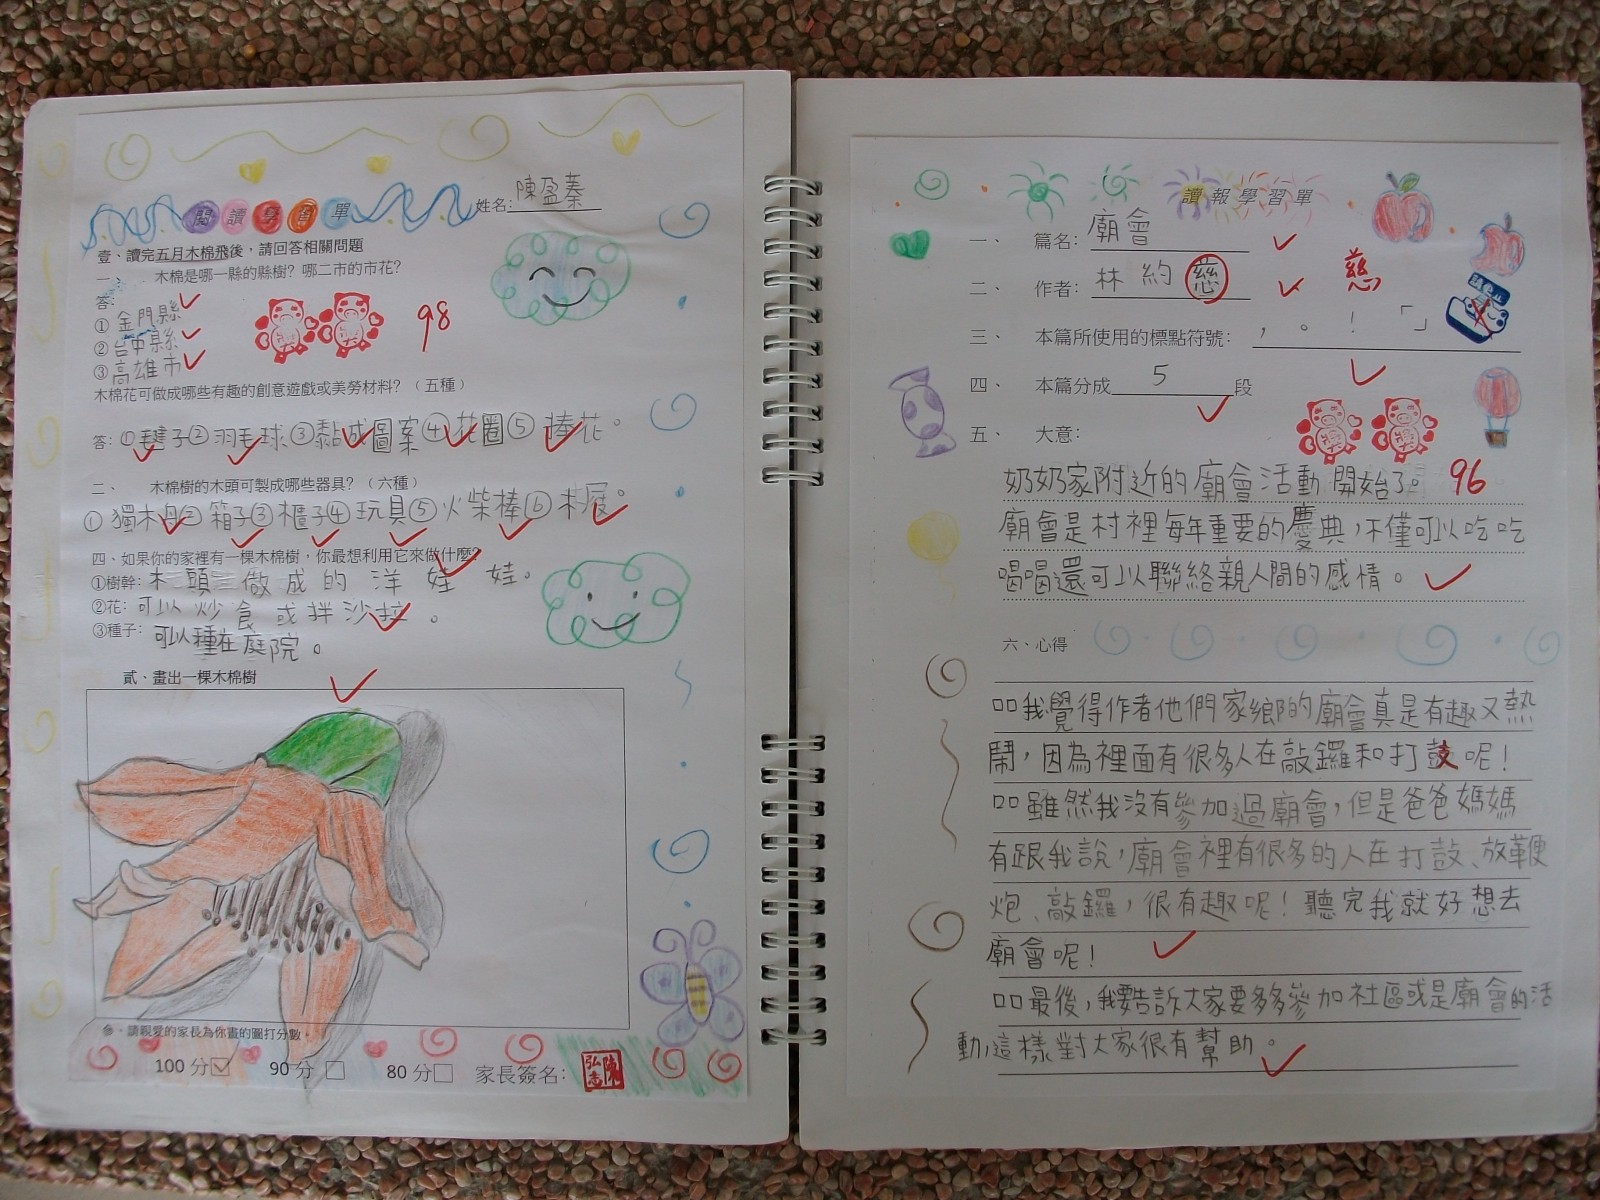 閱讀學習單
姓名:陳盈蓁
壹、讀完五月木棉飛後，請回答相關問題
一、 木棉是哪一縣的縣樹？哪二市的市花？
答:
①金門縣
②台中縣
③高雄市
98
木棉花可做成哪些有趣的創意遊戲或美勞材料？（五種）
答:①毽子②羽毛球③黏成圖案④花圈⑤捧花。
二、 木棉樹的木頭可製成哪些器具？（六種）
①獨木舟②箱子③櫃子④玩具⑤火柴棒⑥木屐。
四、如果你的家裡有一棵木棉樹，你最想利用它來做什麼？
①樹幹:木頭做成的洋娃娃。
②花:可以炒食或拌沙拉。
③種子:可以種在庭院。
貳、畫出一棵木棉樹
參、請親愛的家長為你畫的圖打分數。
100分☑ 90分□ 80分□ 家長簽名:
陳弘志
讀報學習單
一、 篇名:廟會
二、 作者:林約慈 慈
三、 本篇所使用的標點符號: ， 。 ！ 「」
四、 本篇分成5段
五、 大意:
奶奶家附近的廟會活動開始了。 96
廟會是村裡每年重要的慶典，不僅可以吃吃
喝喝還可以聯絡親人間的感情。
六、心得
□□我覺得作者他們家鄉的廟會真是有趣又熱
鬧，因為裡面有很多人在敲鑼和打鼓呢！
□□雖然我沒有參加過廟會，但是爸爸媽媽
有跟我說，廟會裡有很多的人在打鼓、放鞭
炮、敲鑼，很有趣呢！聽完我就好想去
廟會呢！
□□最後，我要告訴大家要多多參加社區或是廟會的活
動，這樣對大家很有幫助。